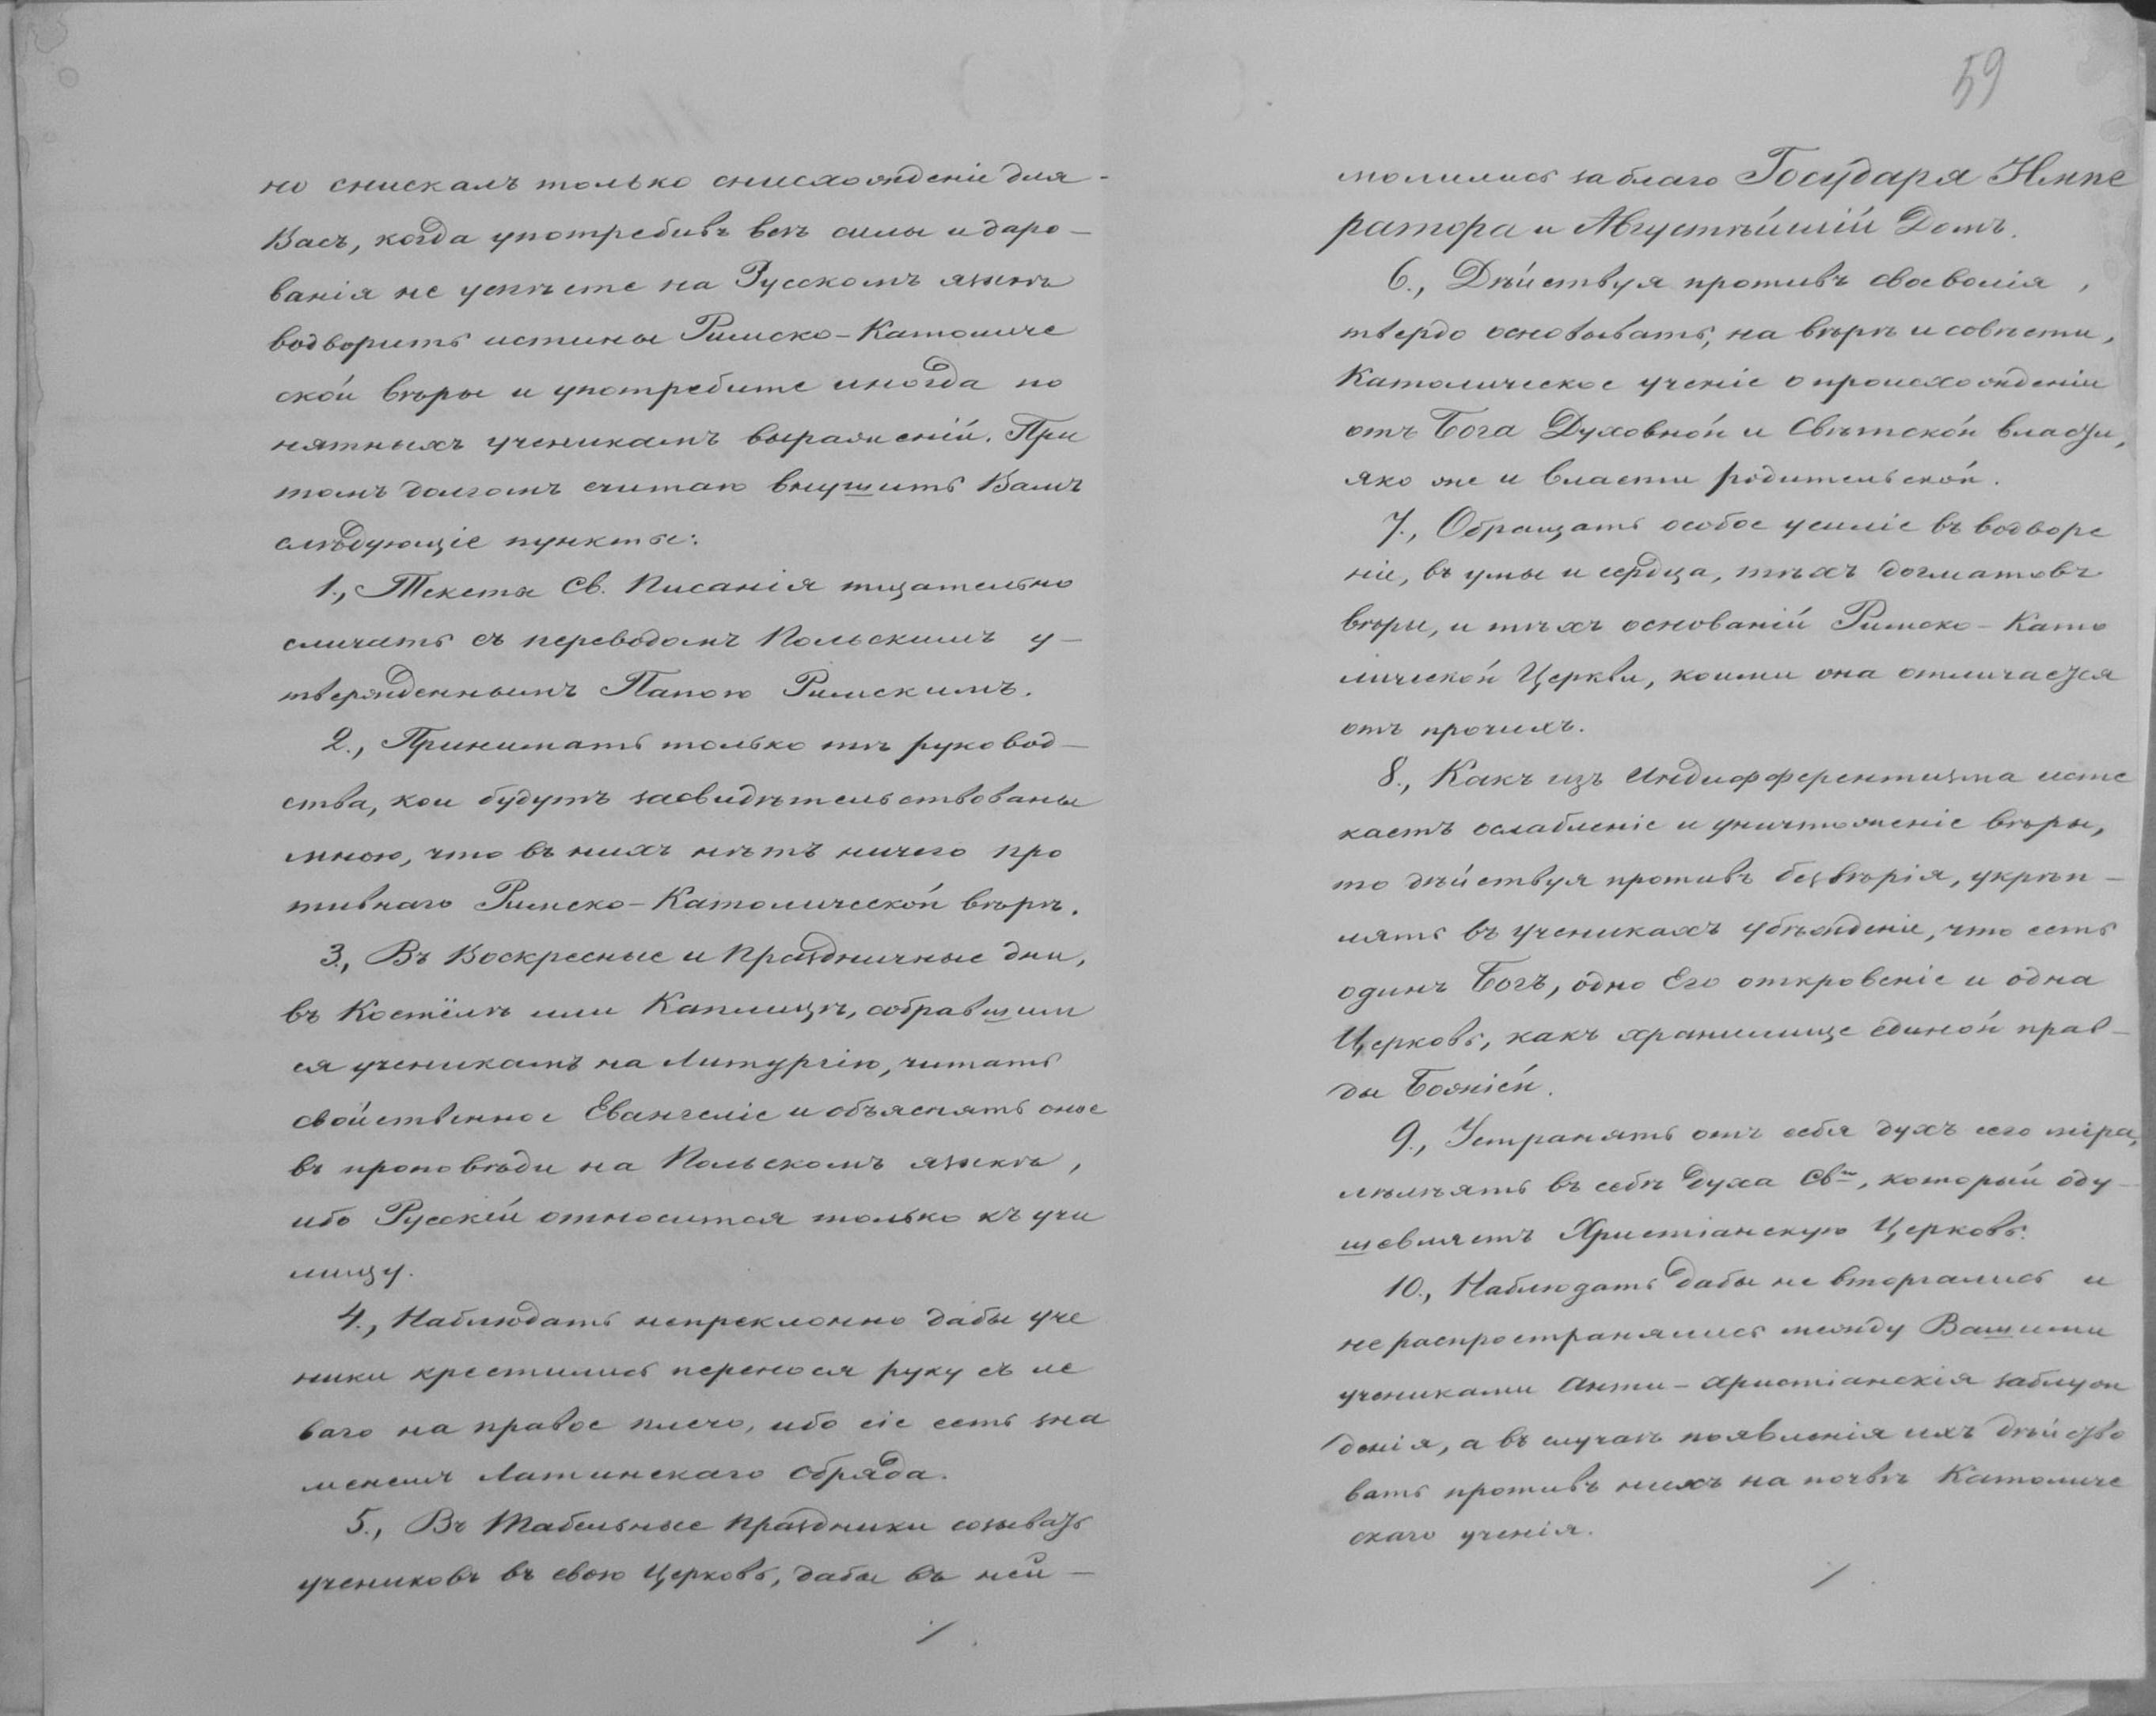 но снискалъ только снисхожденіе для-
Васъ, когда употребивъ всѣ силы и даро-
ванія не успѣете на Русскомъ языкѣ
водворить истины Римско-Католиче
ской вѣры и употребите иногда по
нятныхъ ученикамъ выраженій. При
томъ долгомъ считаю внушить Вамъ
слѣдующіе пункты:
1., Текста Св. Писанія тщательно
сличать съ переводомъ Польскимъ у-
твержденнымъ Папою Римскимъ.
2., Принимать только тѣ руковод-
ства, кои будутъ засвидѣтельствованы
мною, что въ нихъ нѣтъ ничего про
тивнаго Римско-Католической вѣрѣ.
3., Въ Воскресные и праздничные дни,
въ Костёлѣ или Каплицѣ, собравшим
ся ученикамъ на Литургію, читать
свойственное Евангеліе и объяснять оное
въ проповѣди на Польскомъ языкѣ,
ибо Русскій относится только къ учи
лищу.
4., Наблюдать непреклонно дабы уче
ники крестились перенося руку съ ле
ваго на правое плечо, ибо сіе есть зна
меніемъ Латинскаго обряда.
5., Въ Табельные праздники созывать
учениковъ въ свою Церковь, дабы въ ней-
/.
59
молились за благо Государя Импе
ратора и Августѣйшій Домъ.
6., Дѣйствуя противъ своволія,
твердо основывать, на вѣрѣ и совѣсти,
Католическое ученіе о происхожденіи
отъ Бога Духовной и Свѣтской власти,
яко же и власти родительской.
7., Обращать особое усиліе въ водворе
ніе, въ умы и сердца, тѣхъ догматовъ
вѣры, и тѣхъ основаній Римско-Като
лической Церкви, коими она отличается
отъ прочихъ.
8., Какъ изъ Индифферентизма исте
каетъ ослабленіе и уничтоженіе вѣры,
то дѣйствуя противъ безвѣрія, укрѣп-
лять въ ученикахъ убѣжденіе, что есть
одинъ Богъ, одно Его откровеніе и одна
Церковь, какъ хранилище единой прав-
ды Божіей.
9., Устранять отъ себя духъ сего міра,
лелѣять въ себѣ Духа Св., который оду-
шевляетъ Христіанскую Церковь.
10., Наблюдать дабы не вторгались и
не распространялись между Вашими
учениками Анти-христіанскія заблуж
денія, а въ случаѣ появленія ихъ дѣйство
вать противъ нихъ на почвѣ Католиче
скаго ученія.
/.